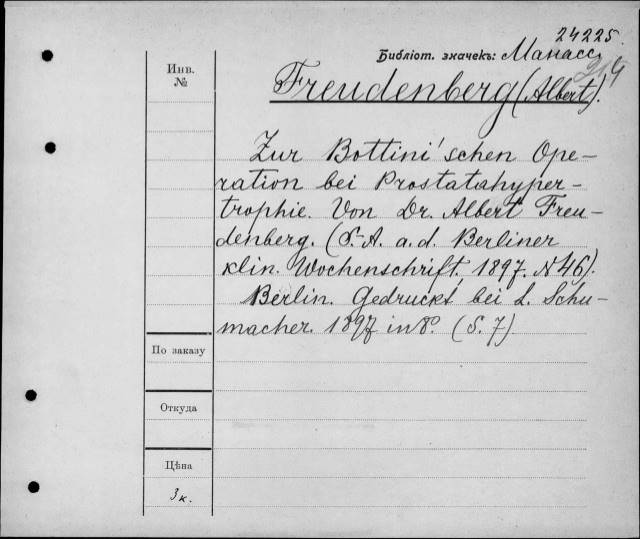 24225.
Библіот. значекъ: Манасс.
314
Инв.
№
Freudenberg (Albert).
Zur Bottini'schen Ope-
ration bei Prostatahyper-
trophie. Von Dr. Albert Freu-
denberg. (S.-A. a. d. Berliner
klin. Wochenschrift, 1897. N 46).
Berlin. Gedruckt bei L. Schu-
macher. 1897. in 8º. (S. 7)
По заказу
Откуда
Цѣна
3 к.